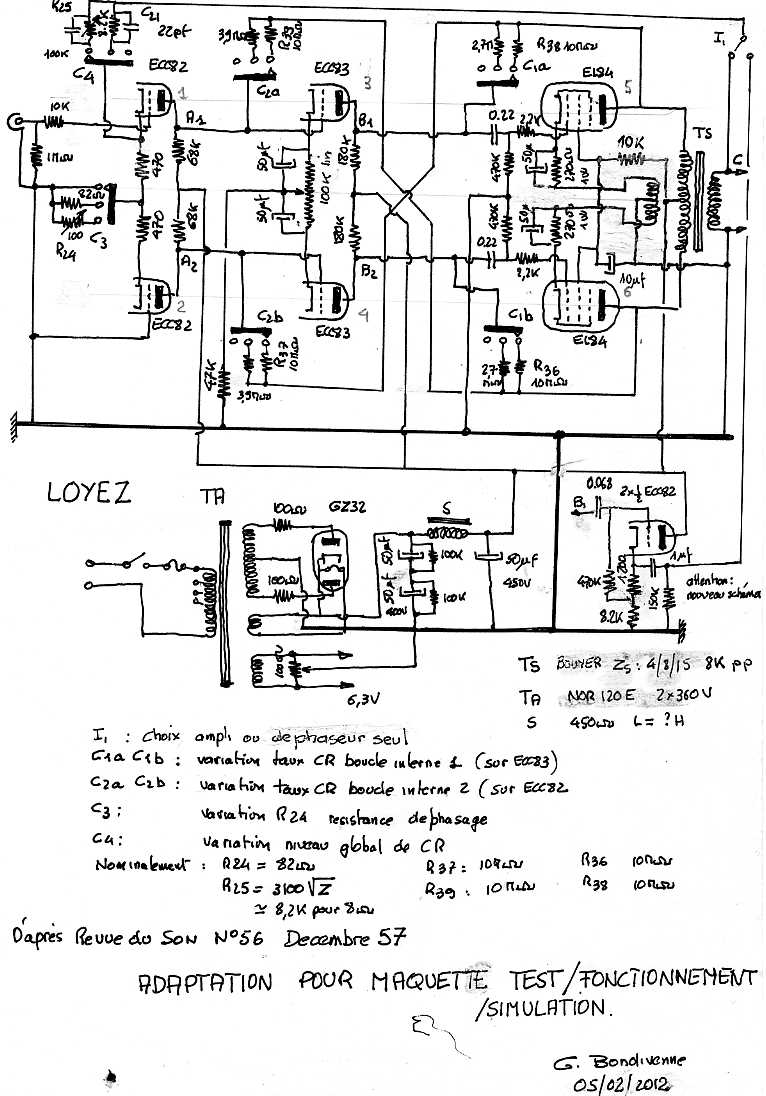 R25
8.2K
C21
22pf
100K
C4
ECC82
1
10K
1MΩ
470
A1
68K
82Ω
100
R24
C3
470
68K
A2
2
ECC82
3,9MΩ
R39
10MΩ
C2a
ECC83
3
50µf
50µf
100K lin
B1
180K
180K
B2
4
ECC83
C2b
R37
10MΩ
3,9MΩ
47K
2,7M
R38 10MΩ
C1a
EL84
5
0.22
2,2K
470K
50µ
270Ω
10W
10K
TS
C
I1
470K
50µ
270Ω
10W
0.22
2,2K
10µf
6
EL84
C1b
2,7
MΩ
R36
10MΩ
LOYEZ
TA
100Ω
GZ32
100Ω
S
50µf
100K
50µf
400V
100K
50µf
450V
100Ω
6,3V
0.068
2x½ ECC82
B1
470K
1200
1µf
150K
8.2K
attention:
nouveau schéma
TS BOUYER Zs: 4/8/15 8K pp
TA NOR 120 E 2x360V
S 450Ω L= ?H
I1 : choix ampli ou dephaseur seul
C1a C1b : variation taux CR boucle interne 1 (sur ECC83)
C2a C2b : variation taux CR boucle interne 2 (sur ECC82
C3 : variation R24 resistance dephasage
C4: variation niveau global de CR
Nominalement : R24 = 82Ω R37: 10MΩ R36 10MΩ
R25 = 3100√Z R39: 10MΩ R38 10MΩ
≃ 8,2K pour 8Ω
D'après Revue du Son N°56 Decembre 57
ADAPTATION POUR MAQUETTE TEST/FONCTIONNEMENT
/SIMULATION.
05/02/2012